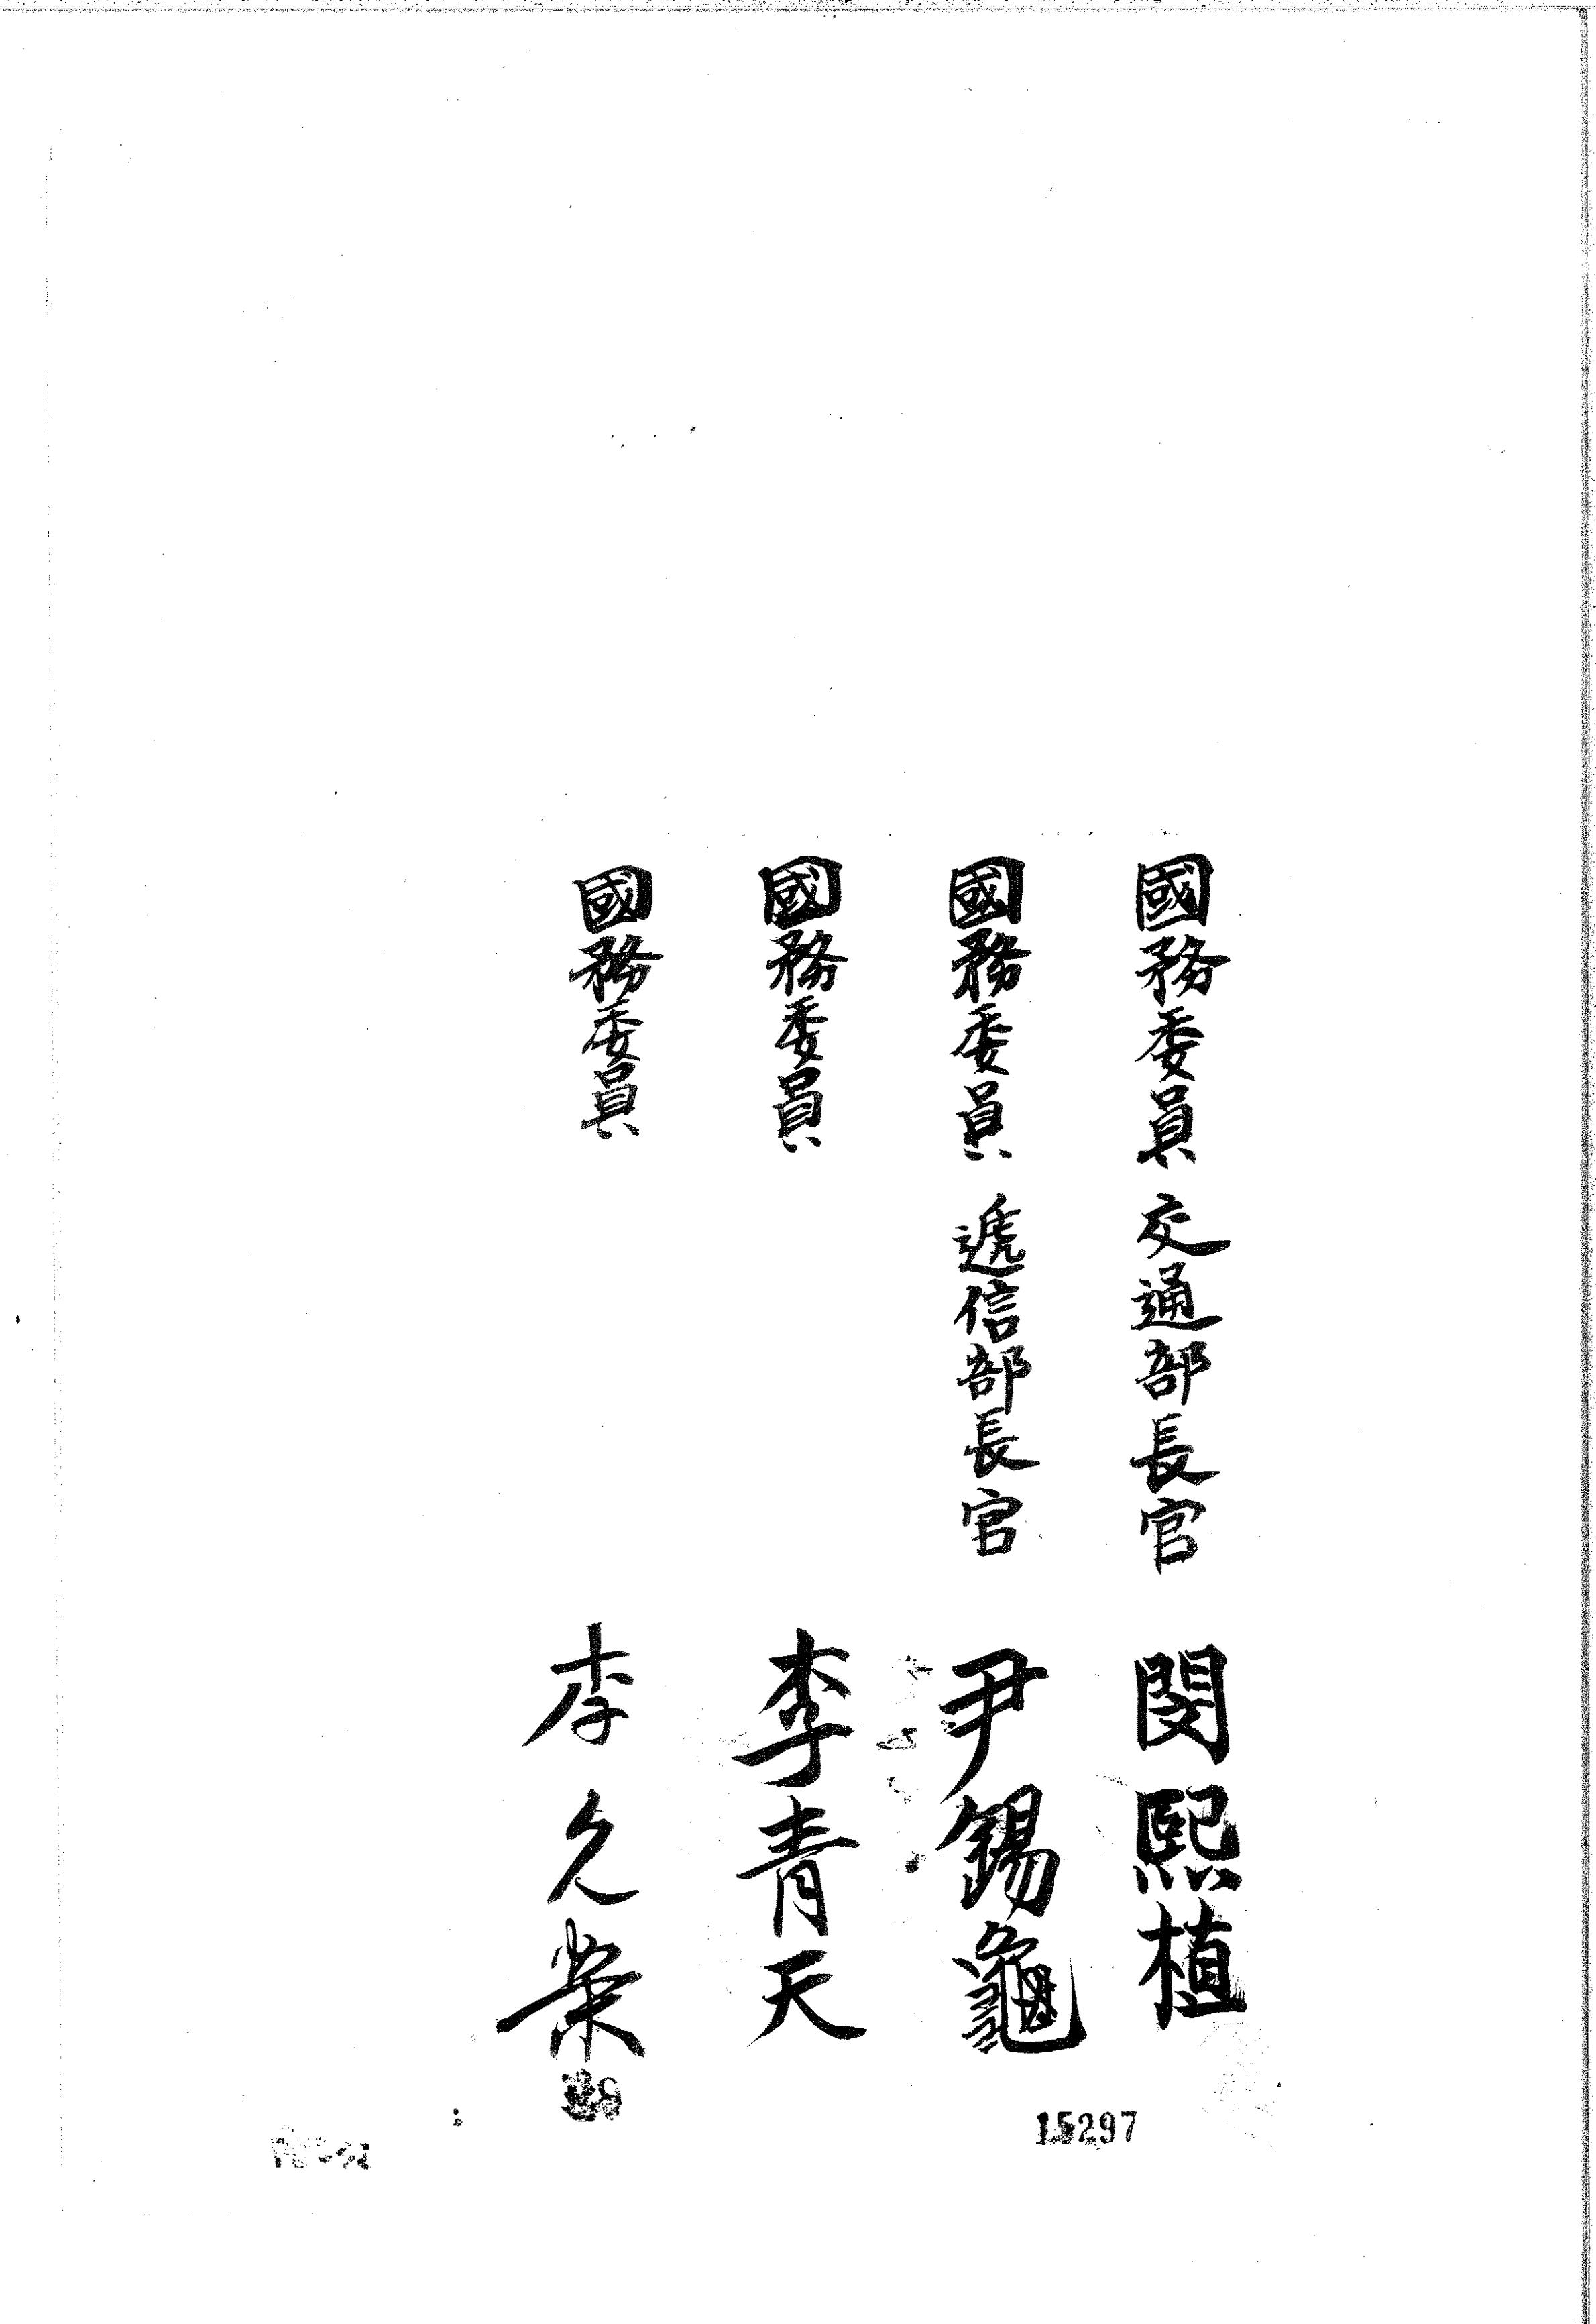 國務委員 交通部長官 閔熙植
國務委員 遞信部長官 尹錫龜
國務委員 李青天
國務委員 李允榮
15297